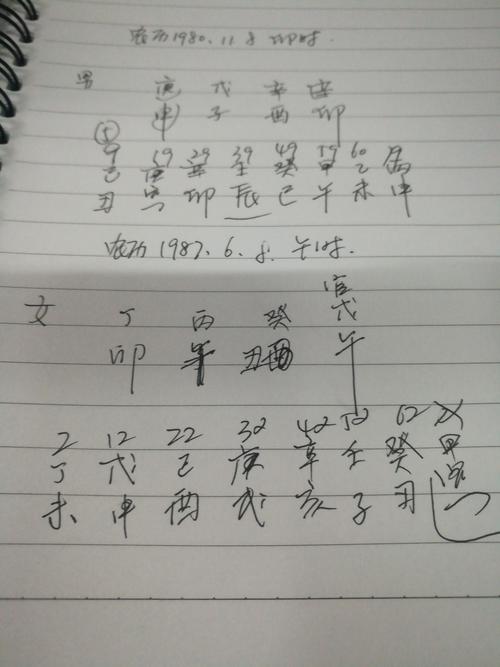 农历1980.11.8 卯时.
男 庚 戊 辛 辛
申 子 酉 卯
⑤
9 19 29 39 49 59 60
己 庚 辛 壬 癸 甲 乙 丙
丑 寅 卯 辰 巳 午 未 申
农历1987.6.8. 午时.
女 丁 丙 癸 戊
卯 丑 午
2 12 22 32 42 52 62
丁 戊 己 庚 辛 壬 癸 甲
未 申 酉 戌 亥 子 丑 寅